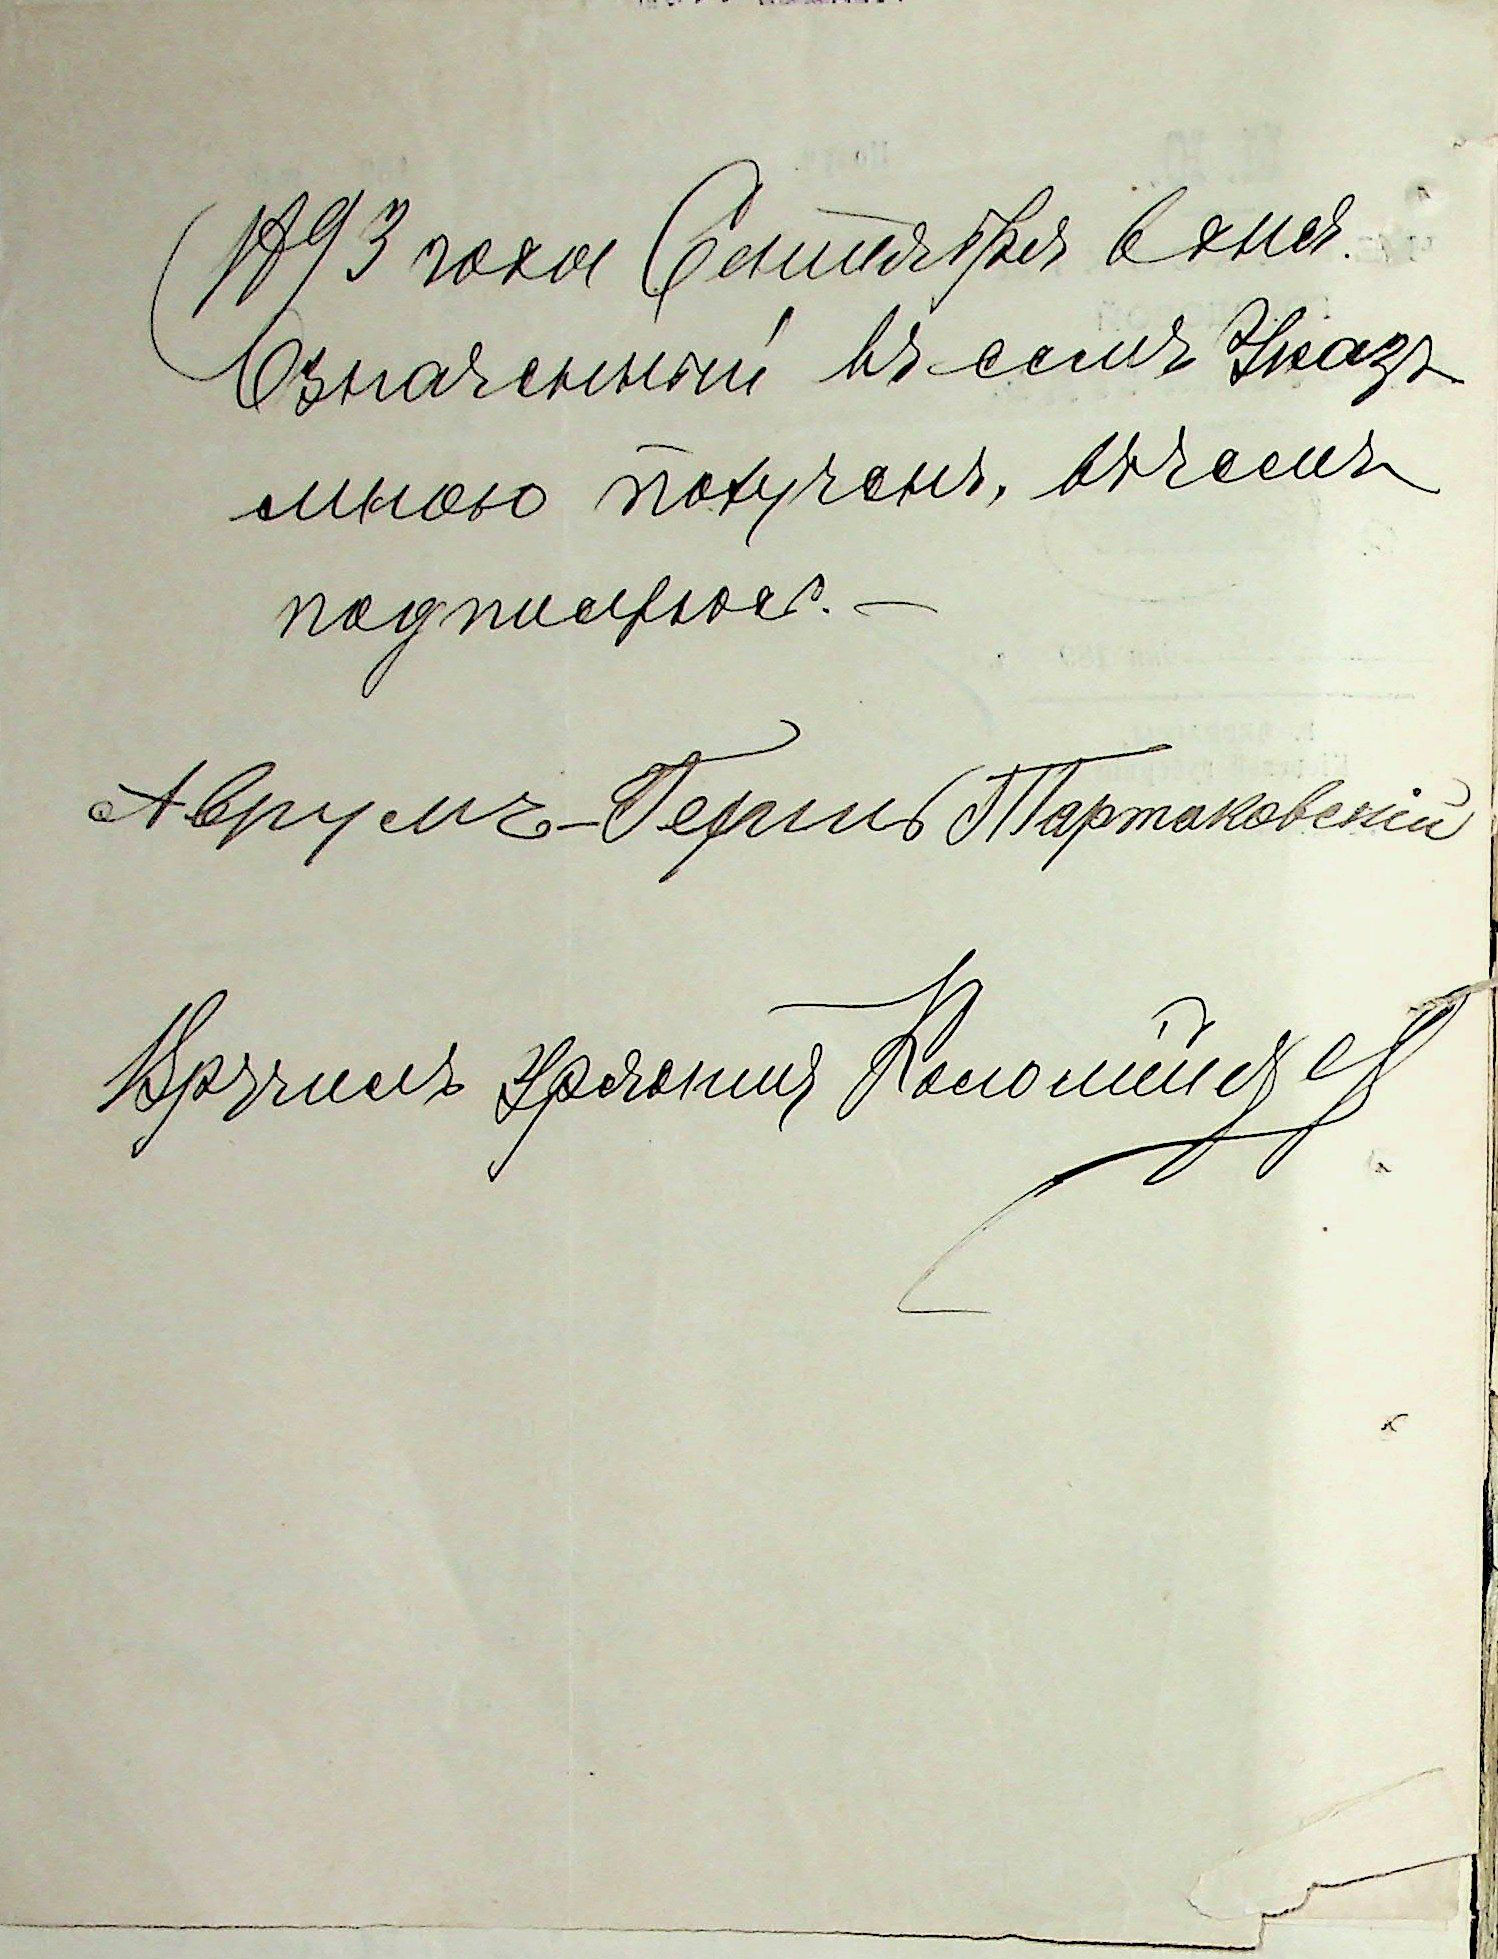 1893 года Сентября 6 дня.
Означенный въ семъ Указъ
мною полученъ, въ чемъ
подписуюсь. —
Аврумъ-Гершъ Тартаковскій
Вручилъ Урядникъ Коломіец